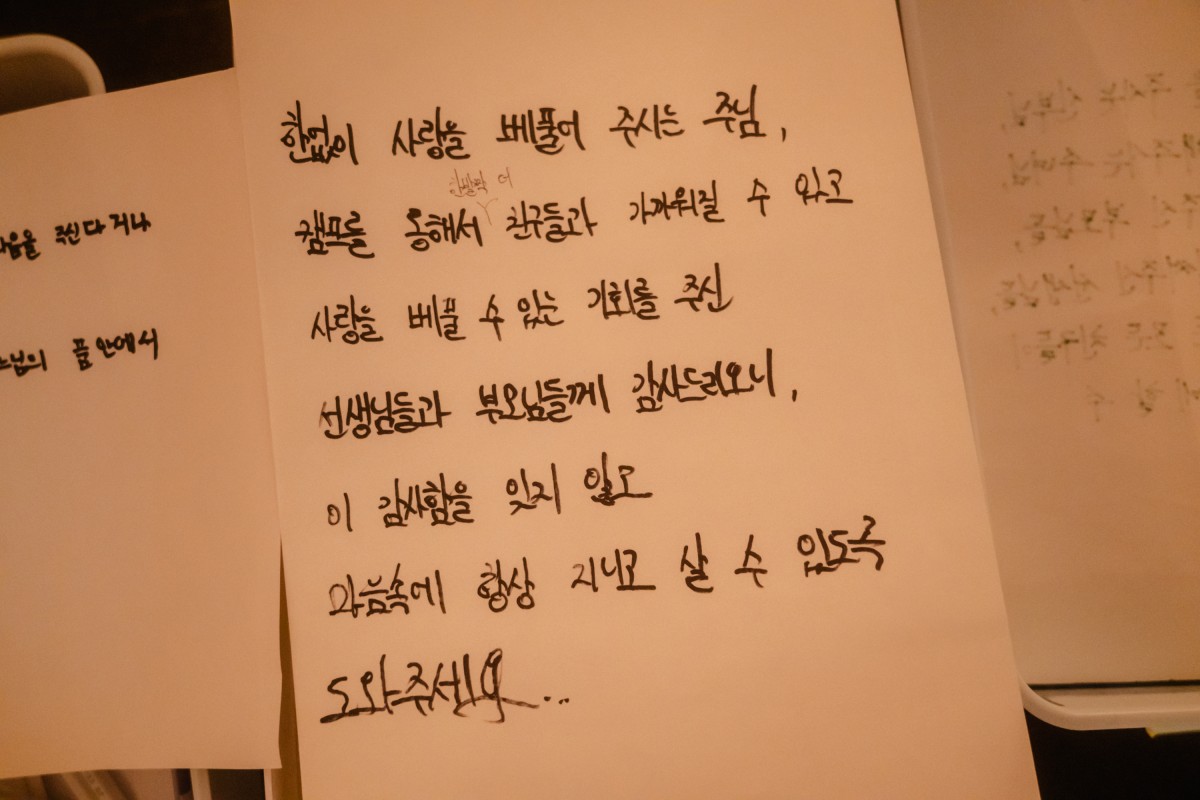 마음을 주신다거나
주님의 품 안에서
한없이 사랑을 베풀어 주시는 주님,
한발짝 더
캠프를 통해서 친구들과 가까워질 수 있고
사랑을 베풀 수 있는 기회를 주신
선생님들과 부모님들께 감사드리오니,
이 감사함을 잊지 않고
마음속에 항상 지니고 살 수 있도록
도와주세요...